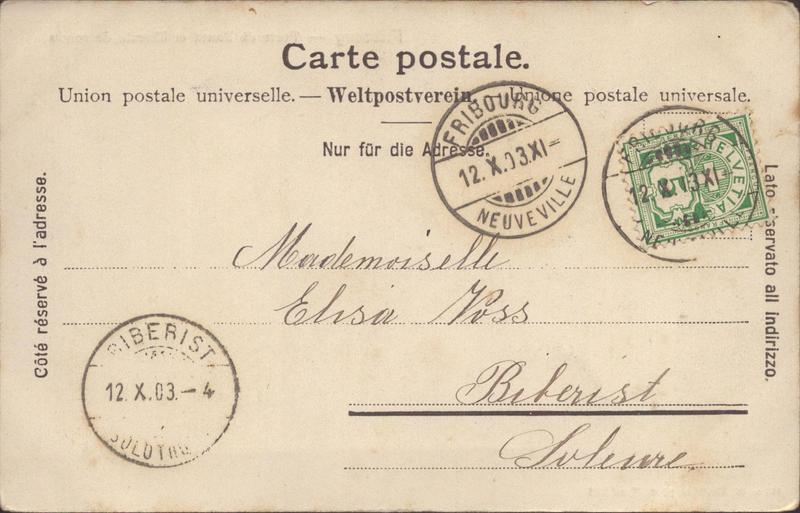 Carte postale.
Union postale universelle. — Weltpostverein. — Unione postale universale.
Nur für die Adresse.
FRIBOURG
12. X. 03. XI –
NEUVEVILLE
12. X. 03. XI –
HELVETIA
Côté réservé à l'adresse.
Lato riservato all indirizzo.
Mademoiselle
Elisa Voss
Biberist
Soleure.
BIBERIST
12. X. 03. – 4